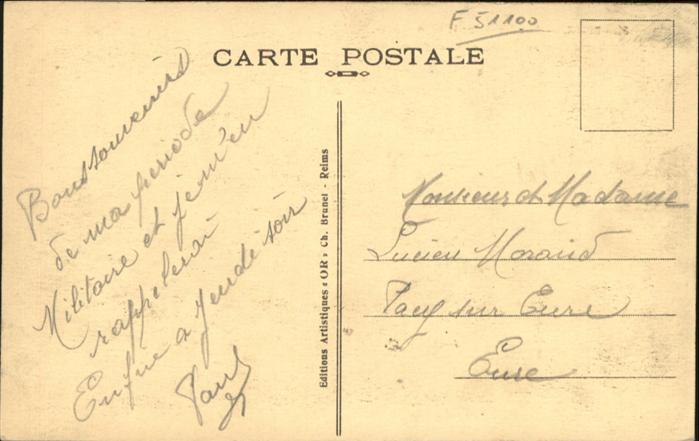 F 51100
CARTE POSTALE
Bonssouvenirs
de ma periode
Militaire et je m'en
rappelerai
Enfin a jeudi soir
Paul
Editions Artistiques « OR » Ch. Brunel - Reims
Monsieur et Madame
Lucien Morand
Pacy sur Eure
Eure